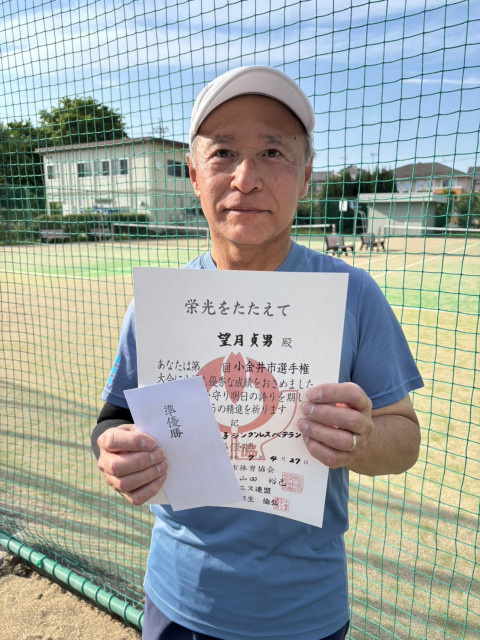 栄光をたたえて
望月貞男 殿
あなたは第 回小金井市選手権
大会に 優秀な成績をおさめました
を守り明日の誇りを期し
の精進を祈ります
記
子シングルスベテラン
4月27日
市体育協会
山田
ニス連盟
準優勝